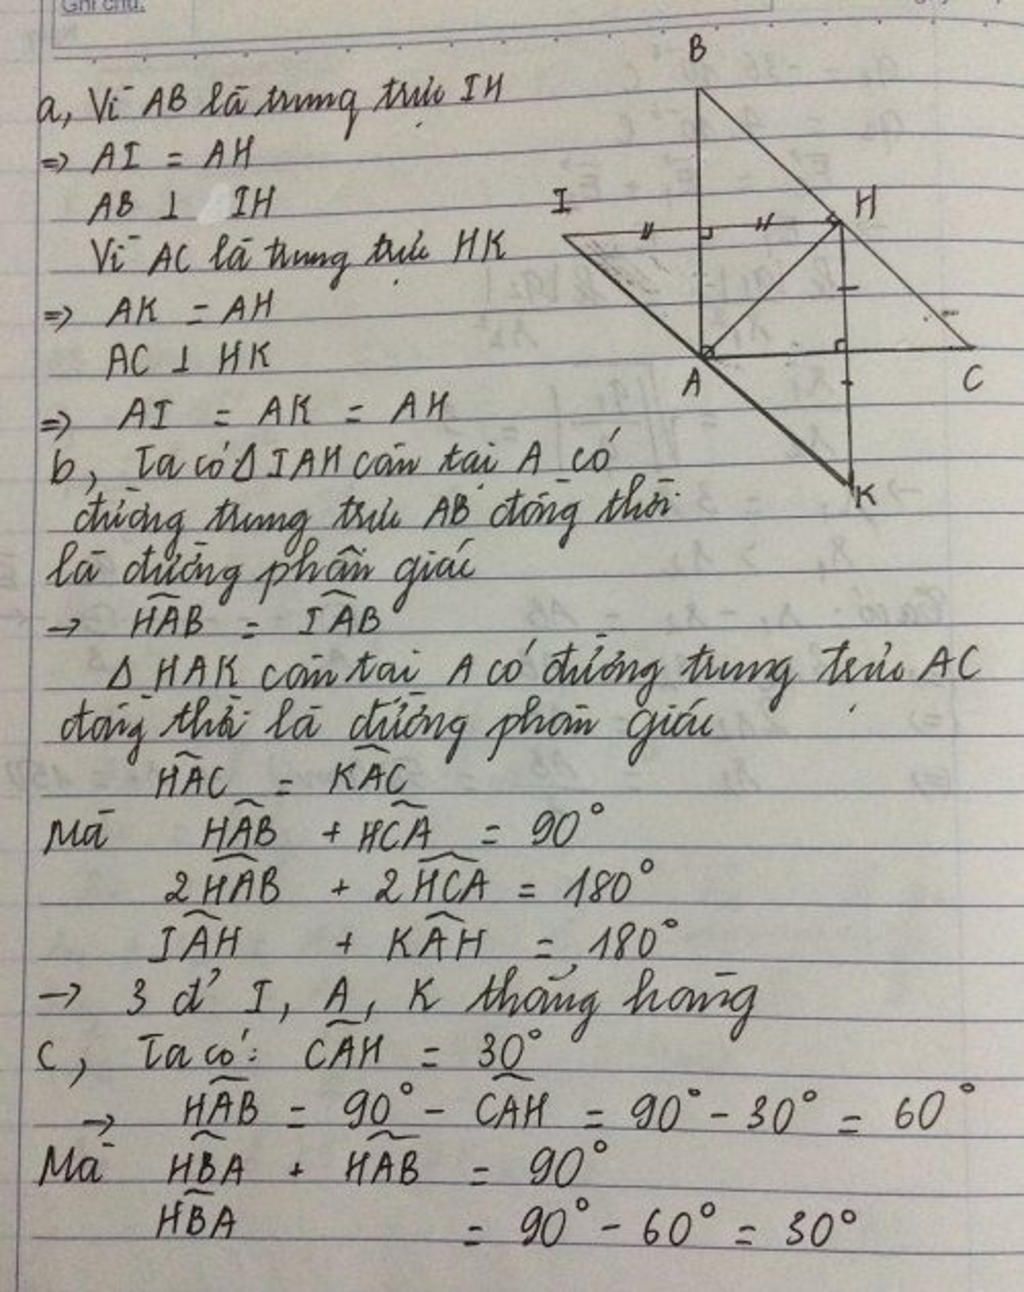 Ghi chú:
a, Vì AB là trung trực IH
=> AI = AH
AB ⊥ IH
Vì AC là trung trực HK
=> AK = AH
AC ⊥ HK
=> AI = AK = AH
b, Ta có Δ IAH cân tại A có
đường trung trực AB đồng thời
là đường phân giác
→ HAB = IAB
Δ HAK cân tại A có đường trung trực AC
đồng thời là đường phân giác
HAC = KAC
Mà HAB + HCA = 90°
2HAB + 2HCA = 180°
IAH + KAH = 180°
→ 3 đ' I, A, K thẳng hàng
c, Ta có: CAH = 30°
→ HAB = 90° - CAH = 90° - 30° = 60°
Mà HBA + HAB = 90°
HBA = 90° - 60° = 30°
B
I
H
A
C
K